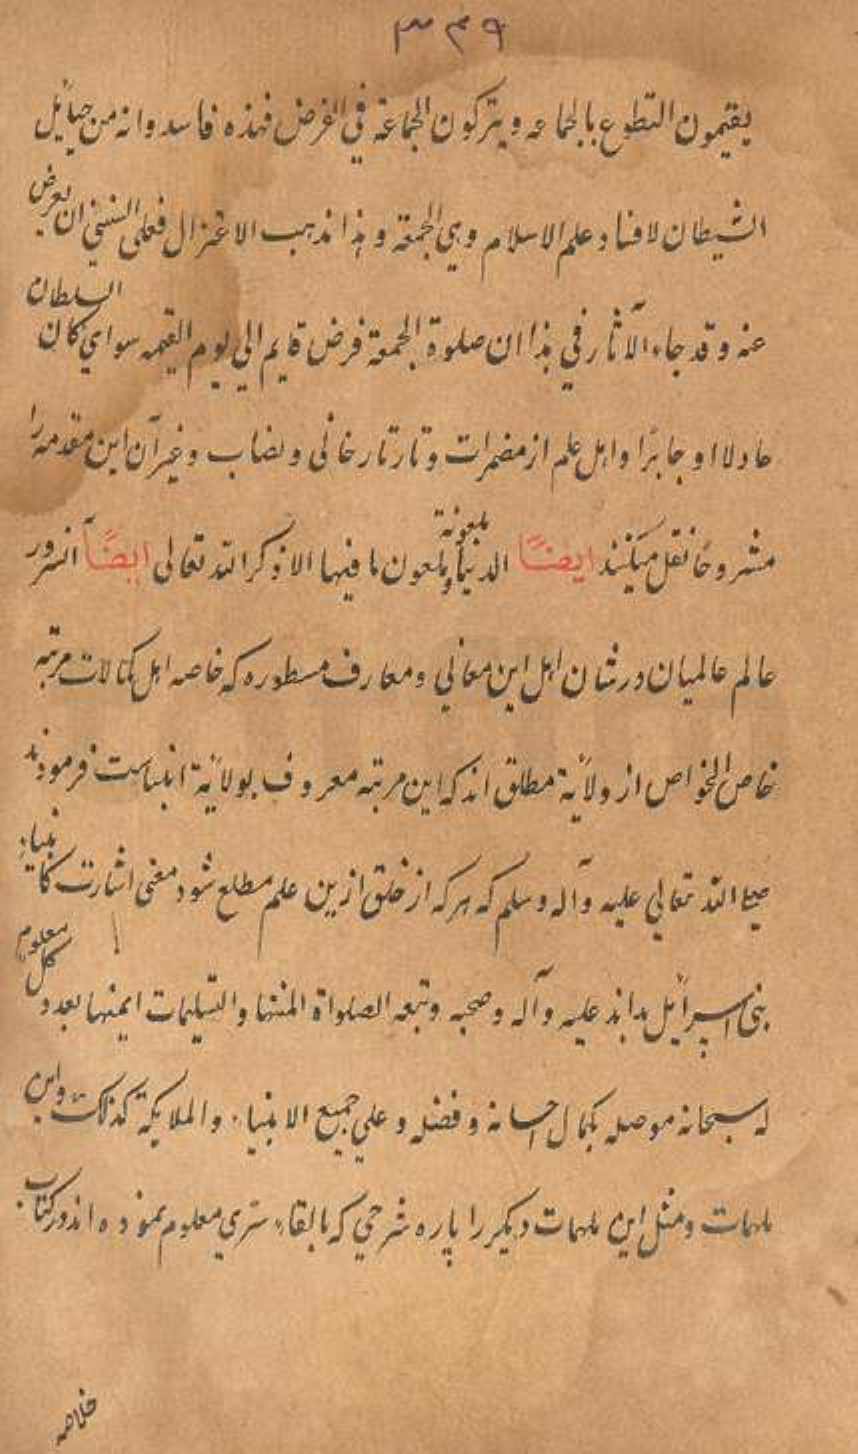 ۳۴۹
یقیمون التطوع بالجماعه ویترکون الجماعة في الفرض فهذه فاسد وانه من حبائل
الشیطان لافناد علم الاسلام وهي الجمعة وهذا مذهب الاعتزال فعلی السني ان یعرض
عنه وقد جاء الآثار في هذا ان صلوة الجمعة فرض قایم الي یوم القیمه سواي کان السلطان
عادلا او جابرًا واهل علم از مضمرات وتارتارخانی ونصاب وغیر آن این مقدمه را
مشروحًا نقل میکنند ایضًا الدنیا ملعونة وملعون ما فیها الا ذکر الله تعالی ایضًا آنسرور
عالم عالمیان در شان اهل این معاني ومعارف مسطوره که خاصه اهل کمالات مرتبه
خاص الخواص از ولایة مطلق اند که این مرتبه معروف بولایة انبیاست فرمودند
صلی الله تعالي علیه وآله وسلم که هر که از خلق ازین علم مطلع شود معنی اشارت کانبیاء
بنی اسرائیل بداند علیه وآله وصحبه وتبعه الصلواة والتسلیمات ایمنها بعدد کل معلوم
له سبحانه موصله بکمال احسانه وفضله وعلي جمیع الانبیاء والملایکة کذلک واین
ملهمات ومثل این ملهمات دیگر را پاره شرحي که بالقاء سرّي معلوم نموده اند در کتاب
خلاصه